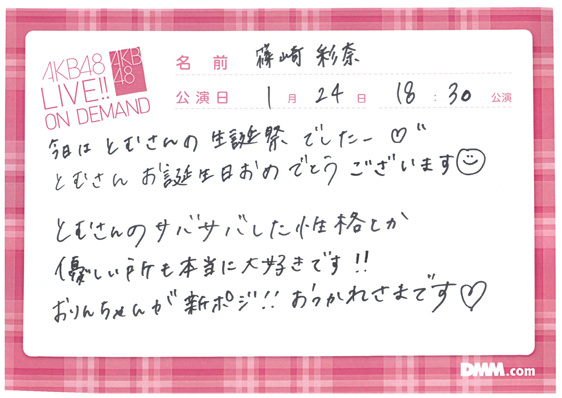 AKB48
LIVE!!
ON DEMAND
AKB
48
名前 篠崎 彩奈
公演日 1月 24日 18:30 公演
今日は とむさんの 生誕祭 でしたー♡"
とむさん お誕生日おめでとう ございます☺
とむさんのサバサバした性格とか
優しい所も本当に大好きです!!
おりんちゃんが新ポジ!! おつかれさまです♡
DMM.com